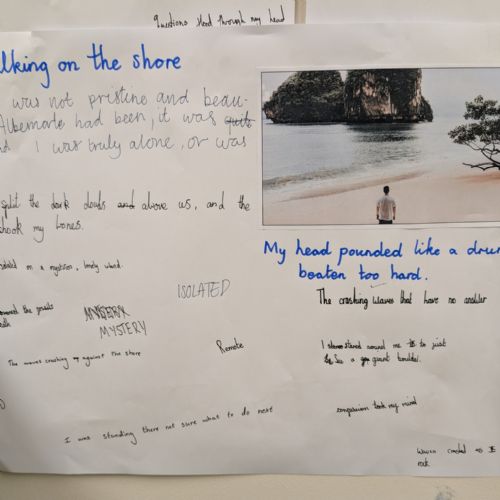 Questions through my head
lking on the shore
was not pristine and beau-
Albemarle had been, it was quite
I was truly alone, or was
split the dark clouds and above us, and the
shook my bones.
on a mysterious, lonely island.
ISOLATED
MYSTERY
MYSTERY
The waves crashing up against the shore
Remote
I was standing there not sure what to do next
My head pounded like a drum
beaten too hard.
The crashing waves that have no another
I stared around me to just
See a giant boulder.
took my mind
Waves crashed as
rock